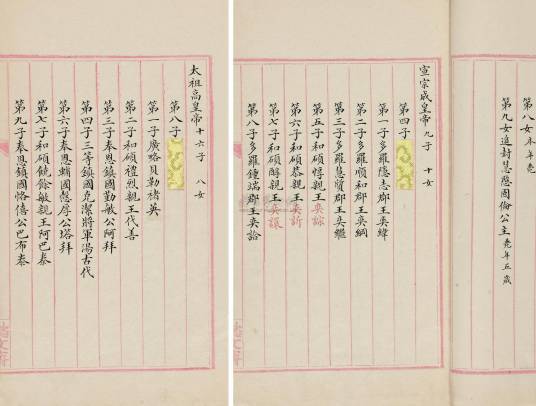 第八女 未年殤
第九女追封慧愍固倫公主 堯年五歲
宣宗成皇帝 九子 十女
第四子
第一子多羅隱志郡王奕緯
第二子多羅順和郡王奕綱
第三子多羅慧質郡王奕繼
第五子和碩惇親王奕誴
第六子和碩恭親王奕訢
第七子和碩醇親王奕譞
第八子多羅鍾端郡王奕詥
太祖高皇帝 十六子 八女
第八子
第一子廣略貝勒褚英
第二子和碩禮烈親王代善
第三子奉恩鎮國勤敏公阿拜
第四子三等鎮國克潔將軍湯古代
第六子奉恩輔國愨厚公塔拜
第七子和碩饒餘敏親王阿巴泰
第九子奉恩鎮國恪僖公巴布泰